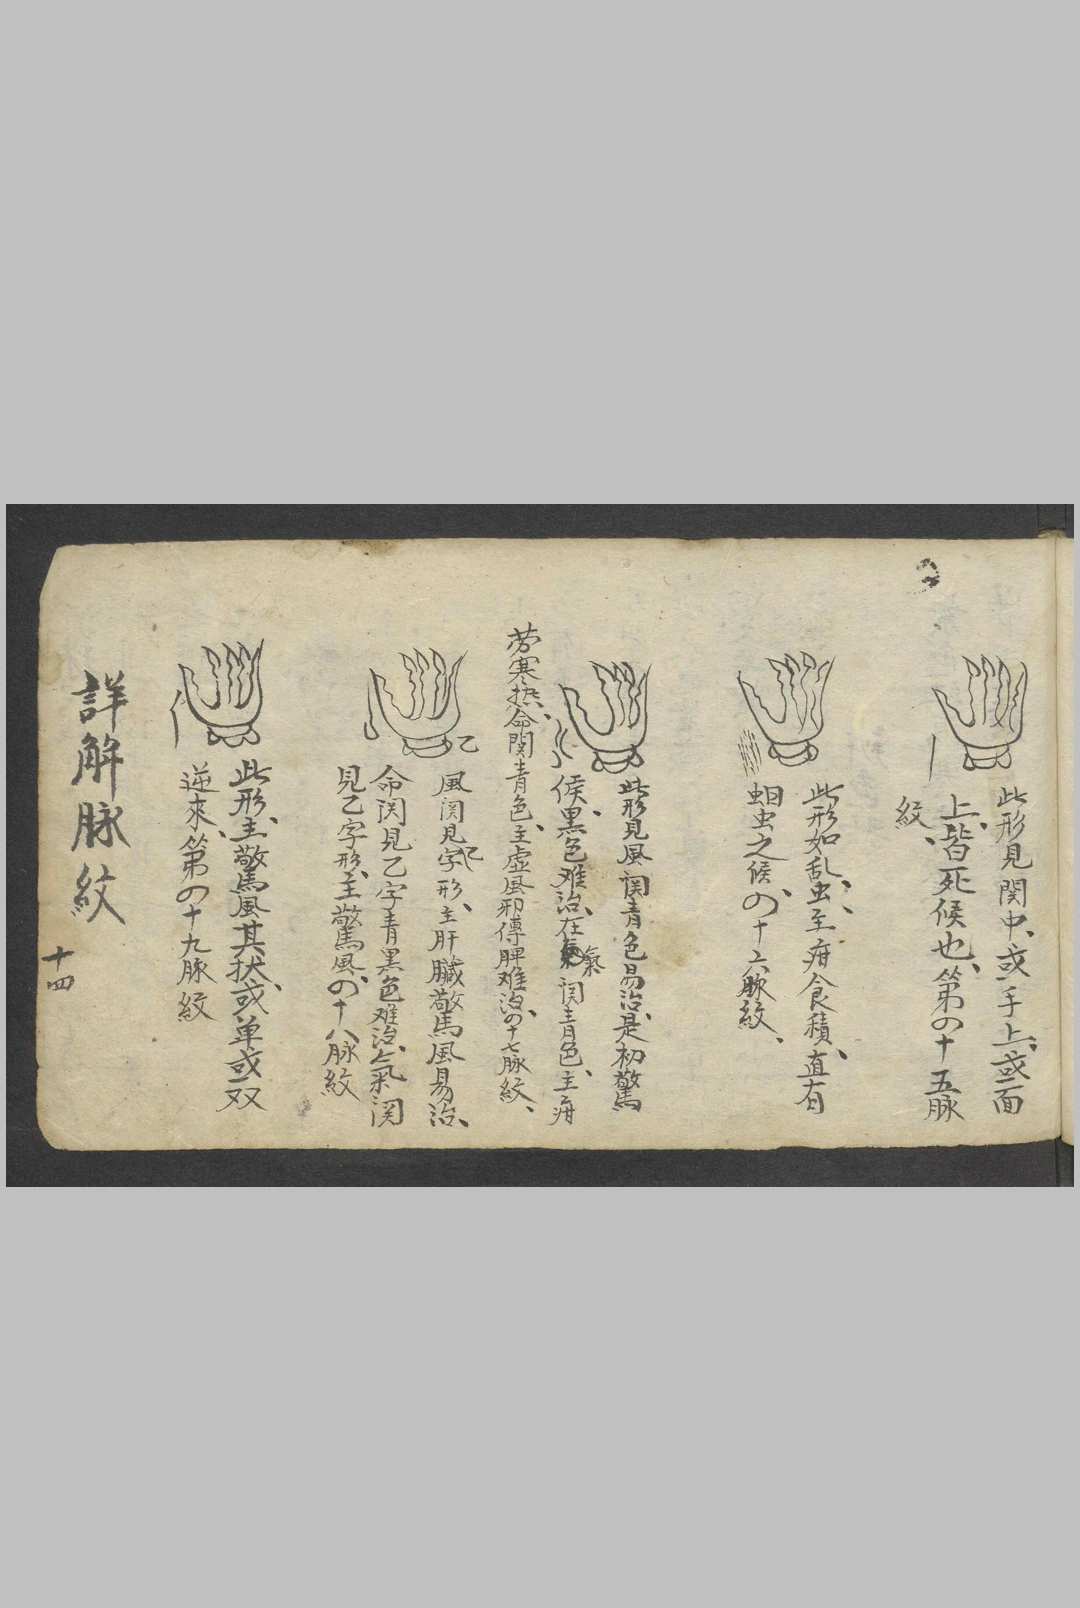 此形見関中、或手上、或面
上、皆死候也、第の十五脉
紋、
此形如乱虫、至疳食積、直有
蛔虫之候、の十六脉紋、
此形見風関青色易治、是初驚
候、黒色难治、在氣関青色、主疳
劳寒热、命関青色、主虚風邪傳脾难治、の十七脉紋、
乙
風関見乙字形、主肝臟驚風易治、
命関見乙字青黒色难治、氣関
見乙字形、主驚風、の十八脉紋
此形、主驚風其状、或单或双
逆來、第の十九脉紋
詳解脉紋
十四